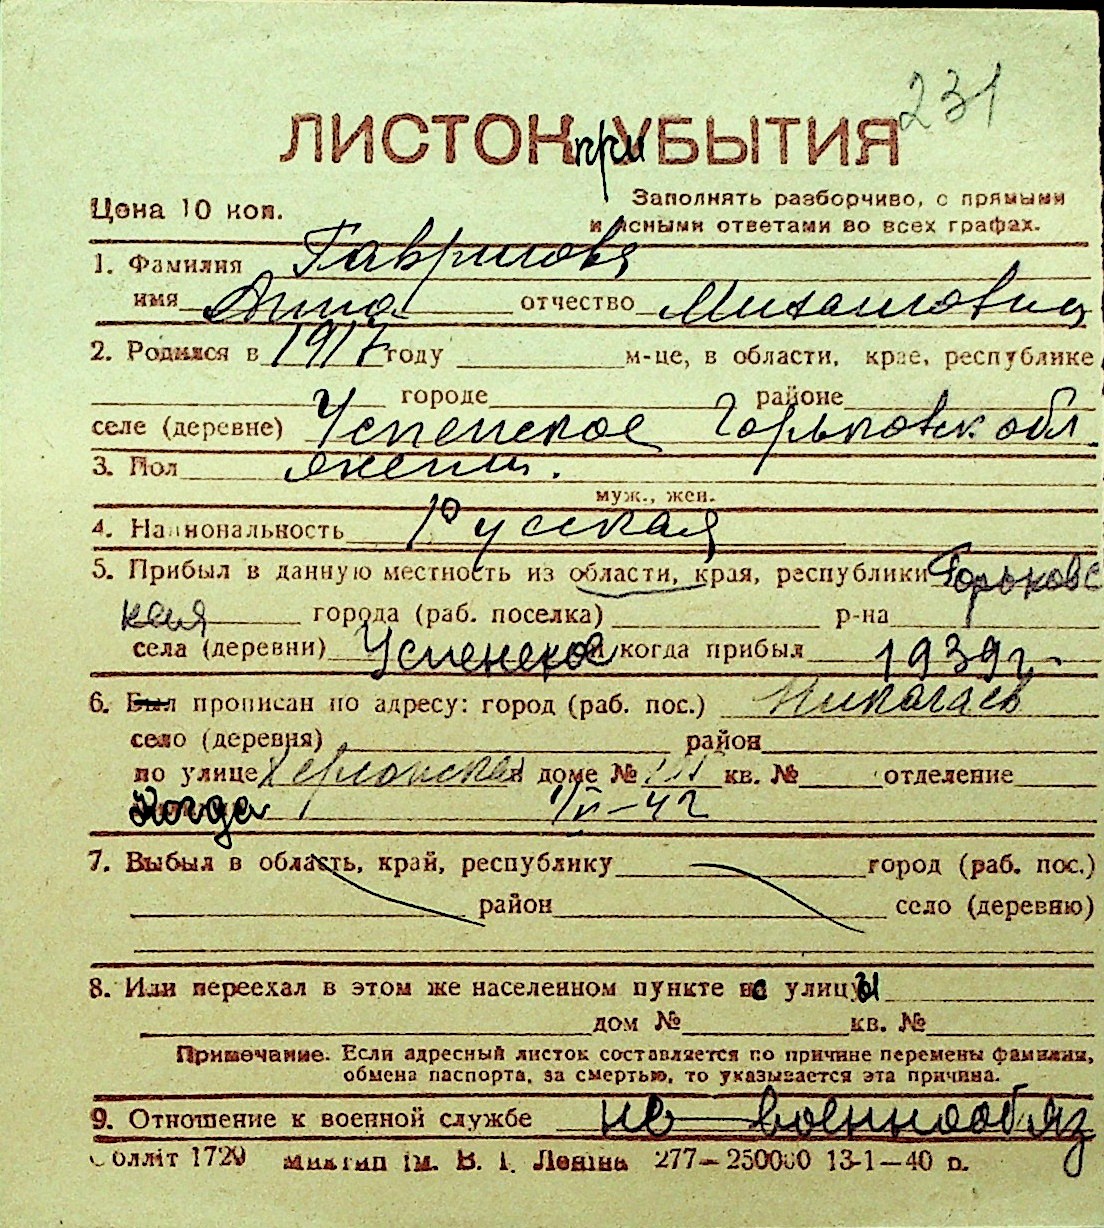 231
ЛИСТОК при УБЫТИЯ
Цена 10 коп.
Заполнять разборчиво, с прямыми
и ясными ответами во всех графах.
1. Фамилия Гаврилова
имя Анна отчество Михайловна
2. Родился в 1917 году м-це, в области, крае, республике
городе районе
селе (деревне) Успенское Горьковск обл.
3. Пол женщ.
муж., жен.
4. Национальность Русская
5. Прибыл в данную местность из области, края, республики Горьковс
кая города (раб. поселка) р-на
села (деревни) Успенское и когда прибыл 1939 г.
6. Был прописан по адресу: город (раб. пос.) Николаев
село (деревня) район
по улице Херсонская доме № кв. № отделение
Когда 1/II-42
7. Выбыл в область, край, республику город (раб. пос.)
район село (деревню)
8. Или переехал в этом же населенном пункте с улицы
дом № кв. №
Примечание. Если адресный листок составляется по причине перемены фамилии,
обмена паспорта, за смертью, то указывается эта причина.
9. Отношение к военной службе не военнообяз
Обллiт 1729 ім. В. І. Леніна 277—250000 13-1—40 р.